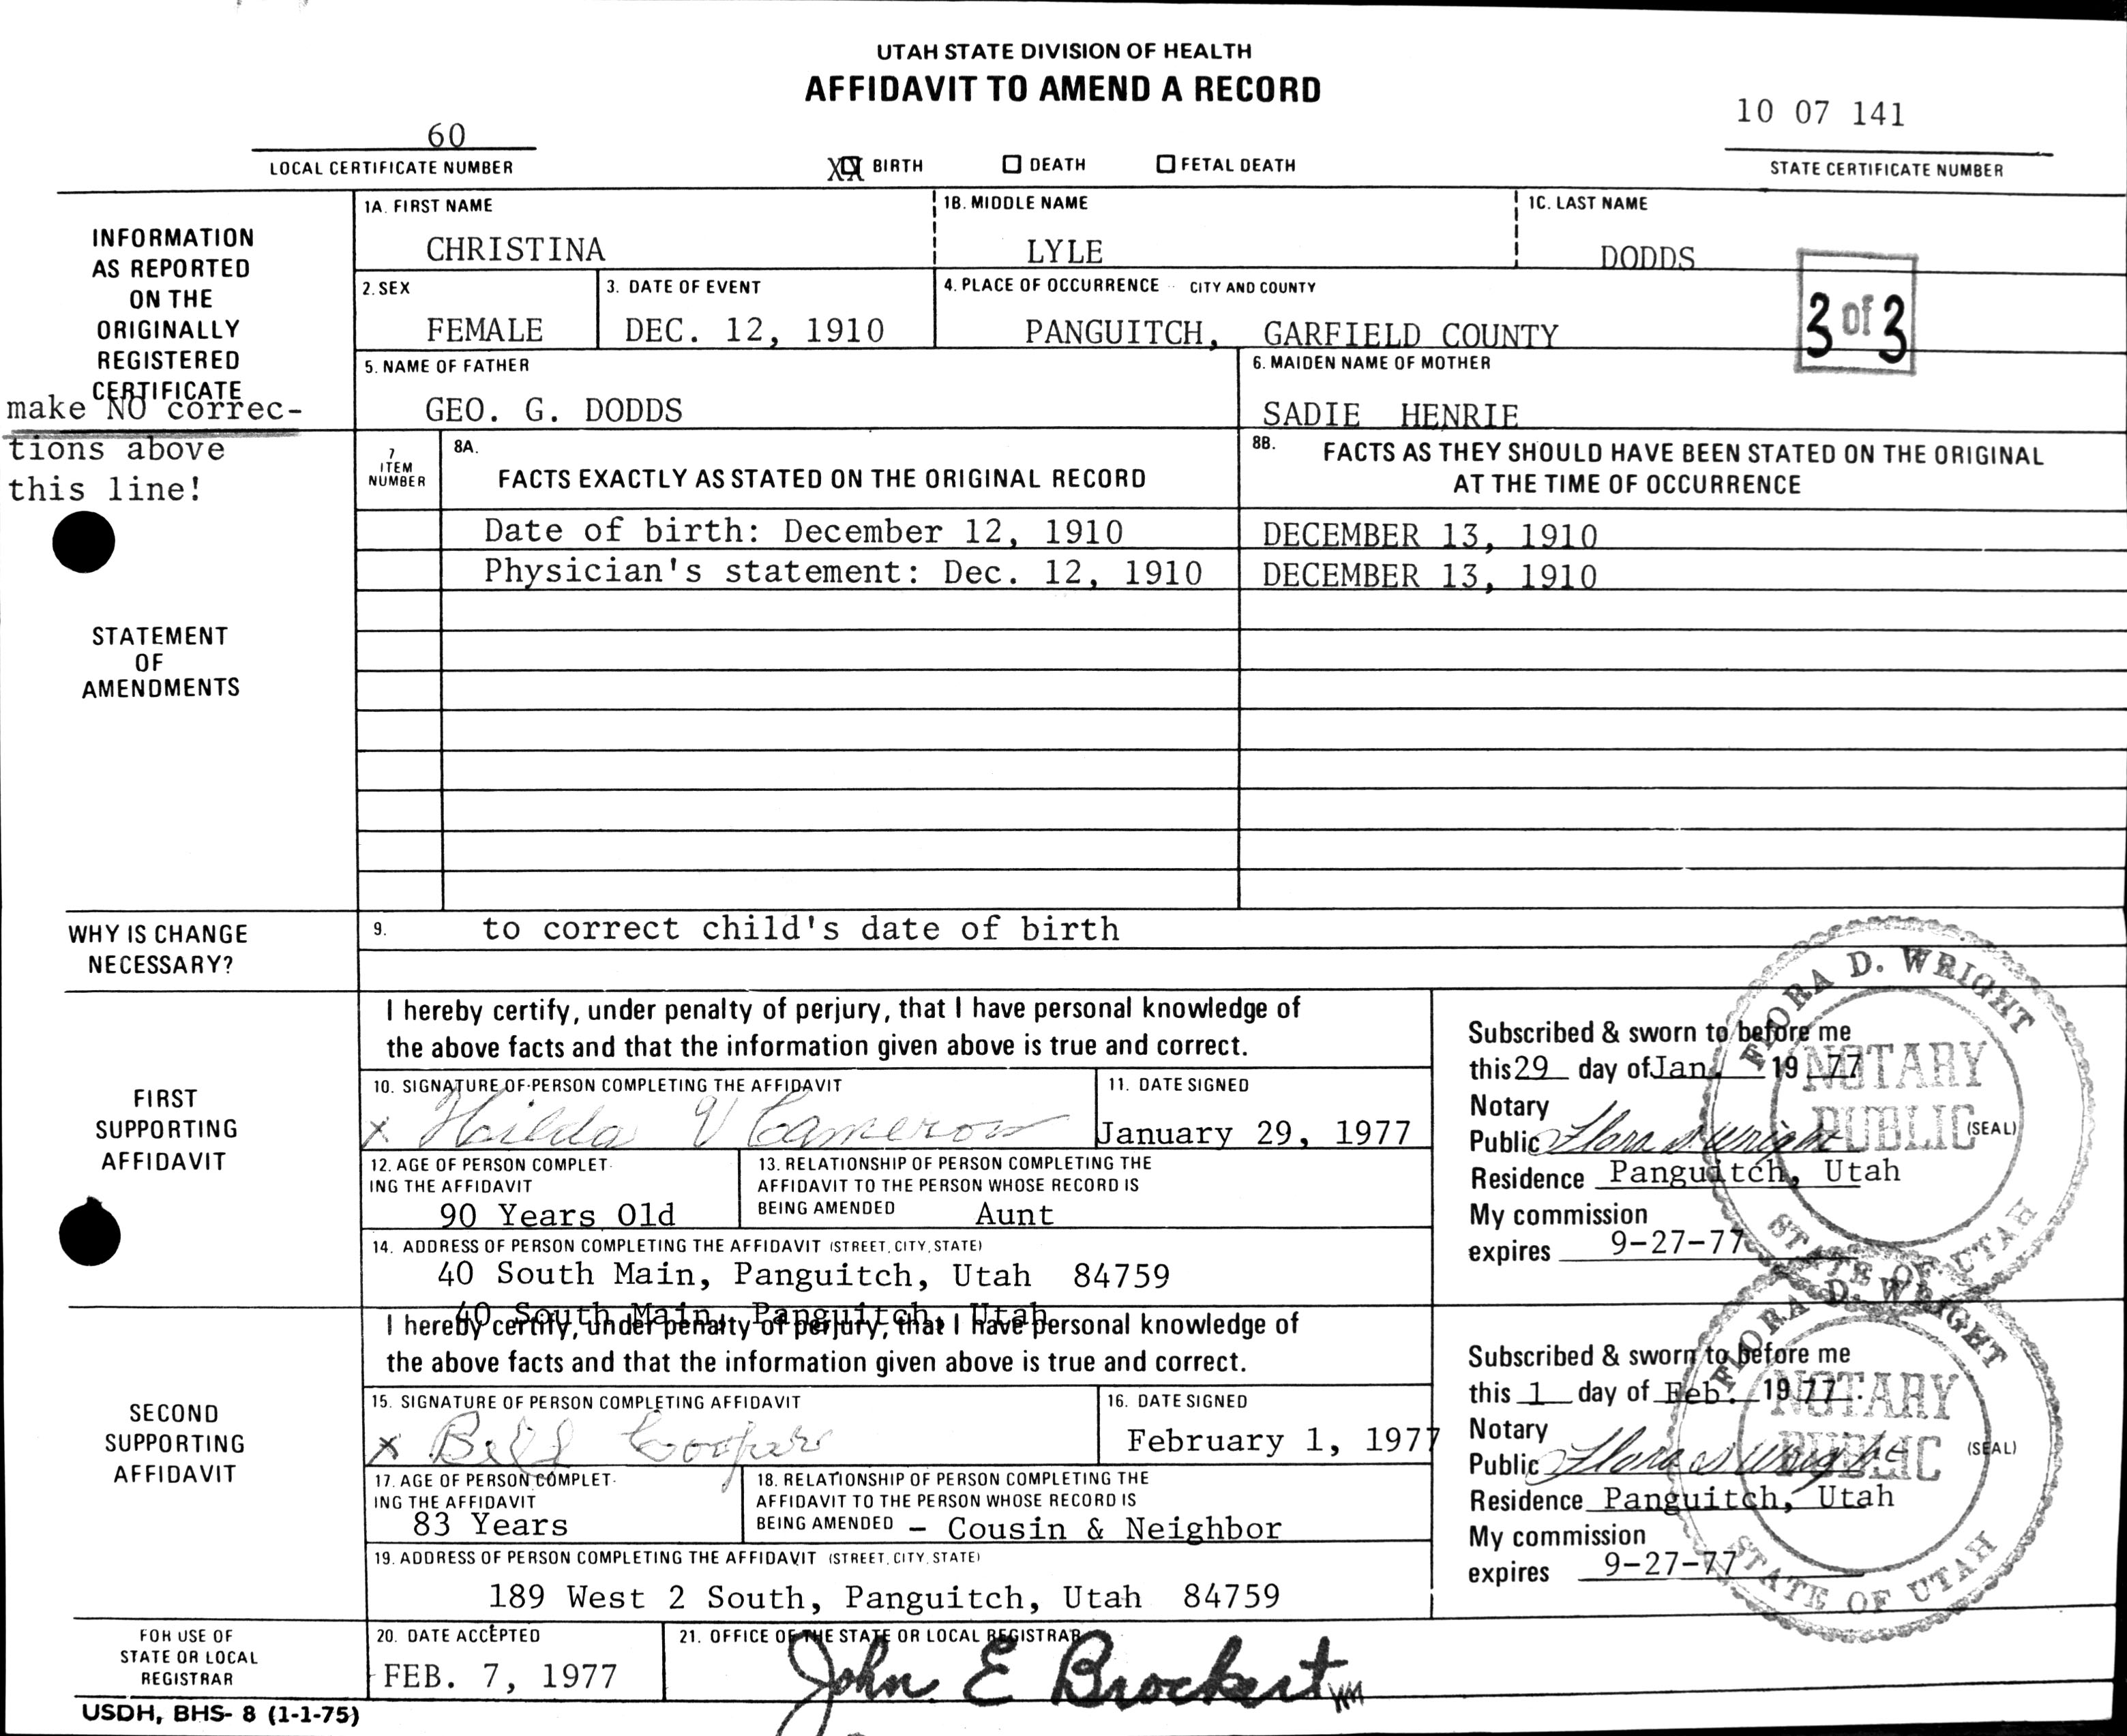 UTAH STATE DIVISION OF HEALTH
AFFIDAVIT TO AMEND A RECORD
60
LOCAL CERTIFICATE NUMBER
XX BIRTH DEATH FETAL DEATH
10 07 141
STATE CERTIFICATE NUMBER
INFORMATION
AS REPORTED
ON THE
ORIGINALLY
REGISTERED
CERTIFICATE
make NO correc-
tions above
this line!
1A. FIRST NAME
CHRISTINA
1B. MIDDLE NAME
LYLE
1C. LAST NAME
DODDS
2. SEX
FEMALE
3. DATE OF EVENT
DEC. 12, 1910
4. PLACE OF OCCURRENCE CITY AND COUNTY
PANGUITCH, GARFIELD COUNTY
3 of 3
5. NAME OF FATHER
GEO. G. DODDS
6. MAIDEN NAME OF MOTHER
SADIE HENRIE
STATEMENT
OF
AMENDMENTS
7
ITEM
NUMBER
8A.
FACTS EXACTLY AS STATED ON THE ORIGINAL RECORD
8B. FACTS AS THEY SHOULD HAVE BEEN STATED ON THE ORIGINAL
AT THE TIME OF OCCURRENCE
Date of birth: December 12, 1910 DECEMBER 13, 1910
Physician's statement: Dec. 12, 1910 DECEMBER 13, 1910
WHY IS CHANGE
NECESSARY?
9. to correct child's date of birth
FIRST
SUPPORTING
AFFIDAVIT
I hereby certify, under penalty of perjury, that I have personal knowledge of
the above facts and that the information given above is true and correct.
10. SIGNATURE OF PERSON COMPLETING THE AFFIDAVIT
x Hilda V Cameron
11. DATE SIGNED
January 29, 1977
12. AGE OF PERSON COMPLET-
ING THE AFFIDAVIT
90 Years Old
13. RELATIONSHIP OF PERSON COMPLETING THE
AFFIDAVIT TO THE PERSON WHOSE RECORD IS
BEING AMENDED Aunt
14. ADDRESS OF PERSON COMPLETING THE AFFIDAVIT (STREET, CITY, STATE)
40 South Main, Panguitch, Utah 84759
40 South Main, Panguitch, Utah
Subscribed & sworn to before me
this 29 day of Jan. 19 77
Notary
Public Flora D. Wright (SEAL)
Residence Panguitch, Utah
My commission
expires 9-27-77
FLORA D. WRIGHT
NOTARY
PUBLIC
STATE OF UTAH
SECOND
SUPPORTING
AFFIDAVIT
I hereby certify, under penalty of perjury, that I have personal knowledge of
the above facts and that the information given above is true and correct.
15. SIGNATURE OF PERSON COMPLETING AFFIDAVIT
x Cooper
16. DATE SIGNED
February 1, 1977
17. AGE OF PERSON COMPLET-
ING THE AFFIDAVIT
83 Years
18. RELATIONSHIP OF PERSON COMPLETING THE
AFFIDAVIT TO THE PERSON WHOSE RECORD IS
BEING AMENDED - Cousin & Neighbor
19. ADDRESS OF PERSON COMPLETING THE AFFIDAVIT (STREET, CITY, STATE)
189 West 2 South, Panguitch, Utah 84759
Subscribed & sworn to before me
this 1 day of Feb. 19 77.
Notary
Public Flora D Wright (SEAL)
Residence Panguitch, Utah
My commission
expires 9-27-77
FLORA D. WRIGHT
NOTARY
PUBLIC
STATE OF UTAH
FOR USE OF
STATE OR LOCAL
REGISTRAR
20. DATE ACCEPTED
FEB. 7, 1977
21. OFFICE OF THE STATE OR LOCAL REGISTRAR
John E Brockert
USDH, BHS- 8 (1-1-75)